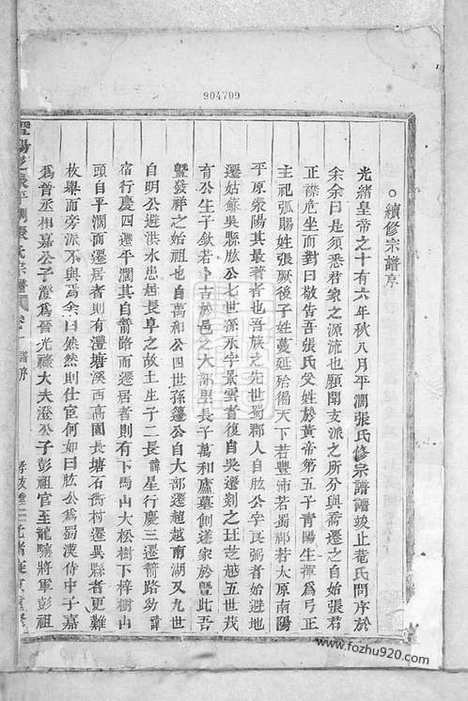 904709
○續修宗譜序
光緒皇帝之十有六年秋八月平澗張氏修宗譜譜竣止菴氏問序於
余余曰是須悉君家之源流也願聞支派之所分與喬遷之自始張君
正襟危坐而對曰敬告吾張氏受姓於黃帝第五子青陽生揮為弓正
主祀弧賜姓張厥後子姓蔓延殆徧天下若豐沛若蜀郡若太原南陽
平原滎陽其最著者也吾族之先世蜀郡人自肱公字良弼者始避地
遷姑蘇吳縣肱公七世孫永字景雲者自吳遷剡之珏芝越五世茂
育公生子欽若令卜吉於邑之大部里長子萬和廬墓創遂家於暨此吾
暨發祥之始祖也自萬和公四世孫篷公自大部遷越越南湖又九世
自明公避洪水患遷長阜之故土生子二長諱星行慶三遷箭路幼諱
宿行慶四遷平澗其自箭路而遷居者則有下馬山大松樹下梓樹山
頭自平澗而遷居者則有澧塘溪西高園長塘石衕村遷異縣者更難
枚舉而旁派不與焉余曰然然則仕宦何如曰肱公為蜀漢侍中子嘉
為晉丞相嘉公子澄為晉光祿大夫澄公子彭祖官至龍驤將軍彭祖
暨陽
平澗張氏宗譜
卷一
譜序